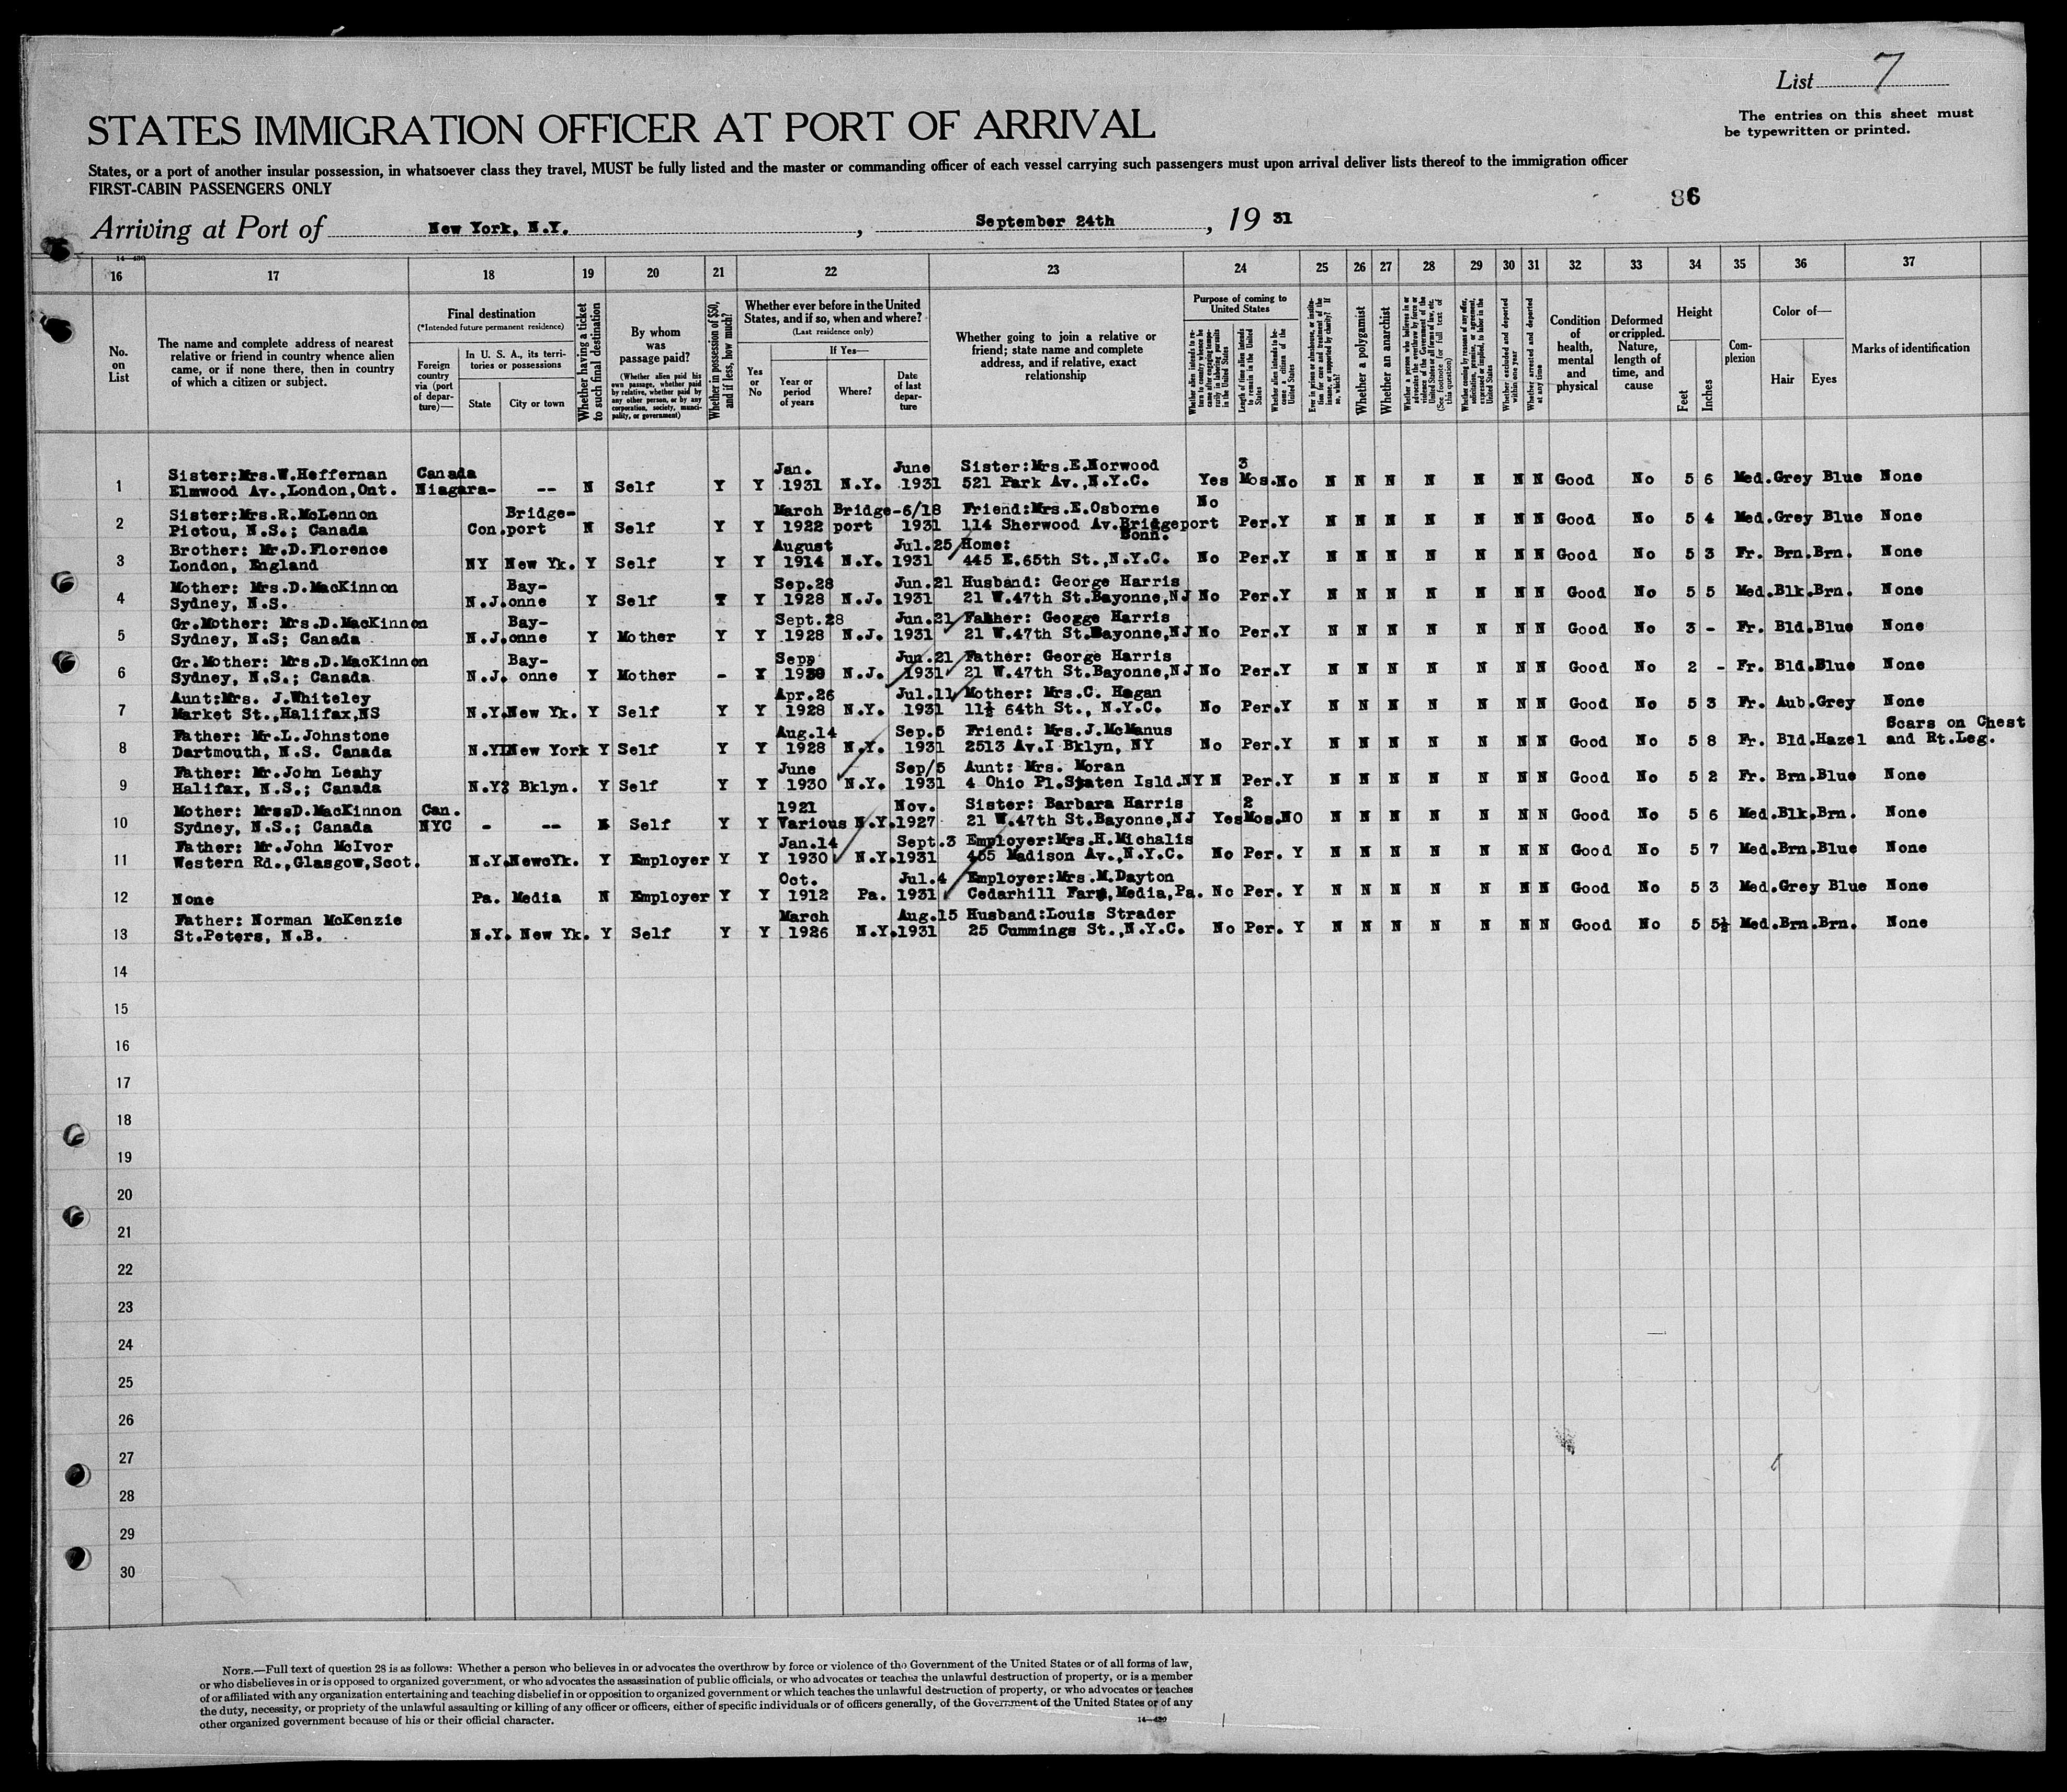 List 7
The entries on this sheet must
be typewritten or printed.
STATES IMMIGRATION OFFICER AT PORT OF ARRIVAL
States, or a port of another insular possession, in whatsoever class they travel, MUST be fully listed and the master or commanding officer of each vessel carrying such passengers must upon arrival deliver lists thereof to the immigration officer
FIRST-CABIN PASSENGERS ONLY
86
Arriving at Port of New York, N.Y. , September 24th , 19 31
14-430
16 17 18 19 20 21 22 23 24 25 26 27 28 29 30 31 32 33 34 35 36 37
No. on List
The name and complete address of nearest relative or friend in country whence alien came, or if none there, then in country of which a citizen or subject.
Final destination
(*Intended future permanent residence)
Foreign country via (port of departure)—
In U. S. A., its territories or possessions
State
City or town
Whether having a ticket to such final destination
By whom was passage paid?
(Whether alien paid his own passage, whether paid by relative, whether paid by any other person, or by any corporation, society, municipality, or government)
Whether in possession of $50, and if less, how much?
Whether ever before in the United States, and if so, when and where?
(Last residence only)
If Yes—
Yes or No
Year or period of years
Where?
Date of last departure
Whether going to join a relative or friend; state name and complete address, and if relative, exact relationship
Purpose of coming to United States
Whether alien intends to return to country whence he came after engaging temporarily in laboring pursuits in the United States
Length of time alien intends to remain in the United States
Whether alien intends to become a citizen of the United States
Ever in prison or almshouse, or institution for care and treatment of the insane, or supported by charity? If so, which?
Whether a polygamist
Whether an anarchist
Whether a person who believes in or advocates the overthrow by force or violence of the Government of the United States or all forms of law, etc. (See footnote for full text of this question)
Whether coming by reasons of any offer, solicitation, promise, or agreement, expressed or implied, to labor in the United States
Whether excluded and deported within one year
Whether arrested and deported at any time
Condition of health, mental and physical
Deformed or crippled. Nature, length of time, and cause
Height
Feet
Inches
Complexion
Color of—
Hair
Eyes
Marks of identification
Sister:Mrs.W.Heffernan Canada Jan. June Sister:Mrs.E.Norwood 3
1 Elmwood Av.,London,Ont. Niagara- -- N Self Y Y 1931 N.Y. 1931 521 Park Av.,N.Y.C. Yes Mos.No N N N N N N N Good No 5 6 Med.Grey Blue None
Sister:Mrs.R.McLennon Bridge- March Bridge-6/18 Friend:Mrs.E.Osborne No
2 Pictou, N.S.; Canada Con.port N Self Y Y 1922 port 1931 114 Sherwood Av.Bridgeport Per.Y N N N N N N N Good No 5 4 Med.Grey Blue None
Bonn.
Brother: Mr.D.Florence August Jul.25 Home:
3 London, England NY New Yk. Y Self Y Y 1914 N.Y. 1931 445 E.65th St.,N.Y.C. No Per.Y N N N N N N N Good No 5 3 Fr. Brn.Brn. None
Mother: Mrs.D.MacKinnon Bay- Sep.28 Jun.21 Husband: George Harris
4 Sydney, N.S. N.J.onne Y Self Y Y 1928 N.J. 1931 21 W.47th St.Bayonne,NJ No Per.Y N N N N N N N Good No 5 5 Med.Blk.Brn. None
Gr.Mother: Mrs.D.MacKinnon Bay- Sept.28 Jun.21 Father: Geogge Harris
5 Sydney, N.S; Canada N.J.onne Y Mother Y Y 1928 N.J. 1931 21 W.47th St.Bayonne,NJ No Per.Y N N N N N N N Good No 3 - Fr. Bld.Blue None
Gr.Mother: Mrs.D.MacKinnon Bay- Sepp Jun.21 Father: George Harris
6 Sydney, N.S.; Canada N.J. onne Y Mother - Y 1930 N.J. 1931 21 W.47th St.Bayonne,NJ No Per.Y N N N N N N N Good No 2 - Fr. Bld.Blue None
Aunt:Mrs. J.Whiteley Apr.26 Jul.11 Mother: Mrs.C. Hagan
7 Market St.,Halifax,NS N.Y.New Yk. Y Self Y Y 1928 N.Y. 1931 11½ 64th St., N.Y.C. No Per.Y N N N N N N N Good No 5 3 Fr. Aub.Grey None
Father: Mr.L.Johnstone Aug.14 Sep.5 Friend: Mrs.J.McManus Scars on Chest
8 Dartmouth, N.S. Canada New York Y Self Y Y 1928 N.Y. 1931 2513 Av.I Bklyn, NY No Per.Y N N N N N N N Good No 5 8 Fr. Bld.Hazel and Rt.Leg.
Father: Mr.John Leahy June Sep/5 Aunt: Mrs. Moran
9 Halifax, N.S.; Canada N.Y? Bklyn. Y Self Y Y 1930 N.Y. 1931 4 Ohio Pl.Staten Isld.NY N Per.Y N N N N N N N Good No 5 2 Fr. Brn.Blue None
Mother: MrssD.MacKinnon Can. 1921 Nov. Sister: Barbara Harris 2
10 Sydney, N.S.; Canada NYC - -- N Self Y Y Various N.Y.1927 21 W.47th St.Bayonne,NJ YesMos.NO N N N N N N N Good No 5 6 Med.Blk.Brn. None
Father: Mr.John McIvor Jan.14 Sept.3 Employer:Mrs.H.Michalis
11 Western Rd.,Glasgow,Scot. N.Y.NewcYk. Y Employer Y Y 1930 N.Y.1931 455 Madison Av.,N.Y.C. No Per. Y N N N N N N N Good No 5 7 Med.Brn.Blue None
Oct. Jul.4 Employer:Mrs.M.Dayton
12 None Pa. Media N Employer Y Y 1912 Pa. 1931 Cedarhill Farm,Media,Pa. No Per. Y N N N N N N N Good No 5 3 Med.Grey Blue None
Father: Norman McKenzie March Aug.15 Husband:Louis Strader
13 St.Peters, N.B. N.Y. New Yk. Y Self Y Y 1926 N.Y.1931 25 Cummings St.,N.Y.C. No Per. Y N N N N N N N Good No 5 5½ Med.Brn.Brn. None
14
15
16
17
18
19
20
21
22
23
24
25
26
27
28
29
30
NOTE.—Full text of question 28 is as follows: Whether a person who believes in or advocates the overthrow by force or violence of the Government of the United States or of all forms of law,
or who disbelieves in or is opposed to organized government, or who advocates the assassination of public officials, or who advocates or teaches the unlawful destruction of property, or is a member
of or affiliated with any organization entertaining and teaching disbelief in or opposition to organized government or which teaches the unlawful destruction of property, or who advocates or teaches
the duty, necessity, or propriety of the unlawful assaulting or killing of any officer or officers, either of specific individuals or of officers generally, of the Government of the United States or of any
other organized government because of his or their official character.
14-430